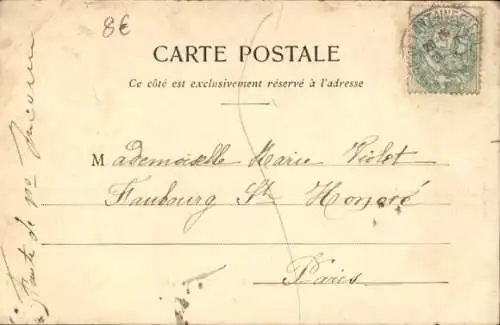 8€
CARTE POSTALE
Ce côté est exclusivement réservé à l'adresse
Mademoiselle Marie Violet
Faubourg St Honoré
Paris
Faute de